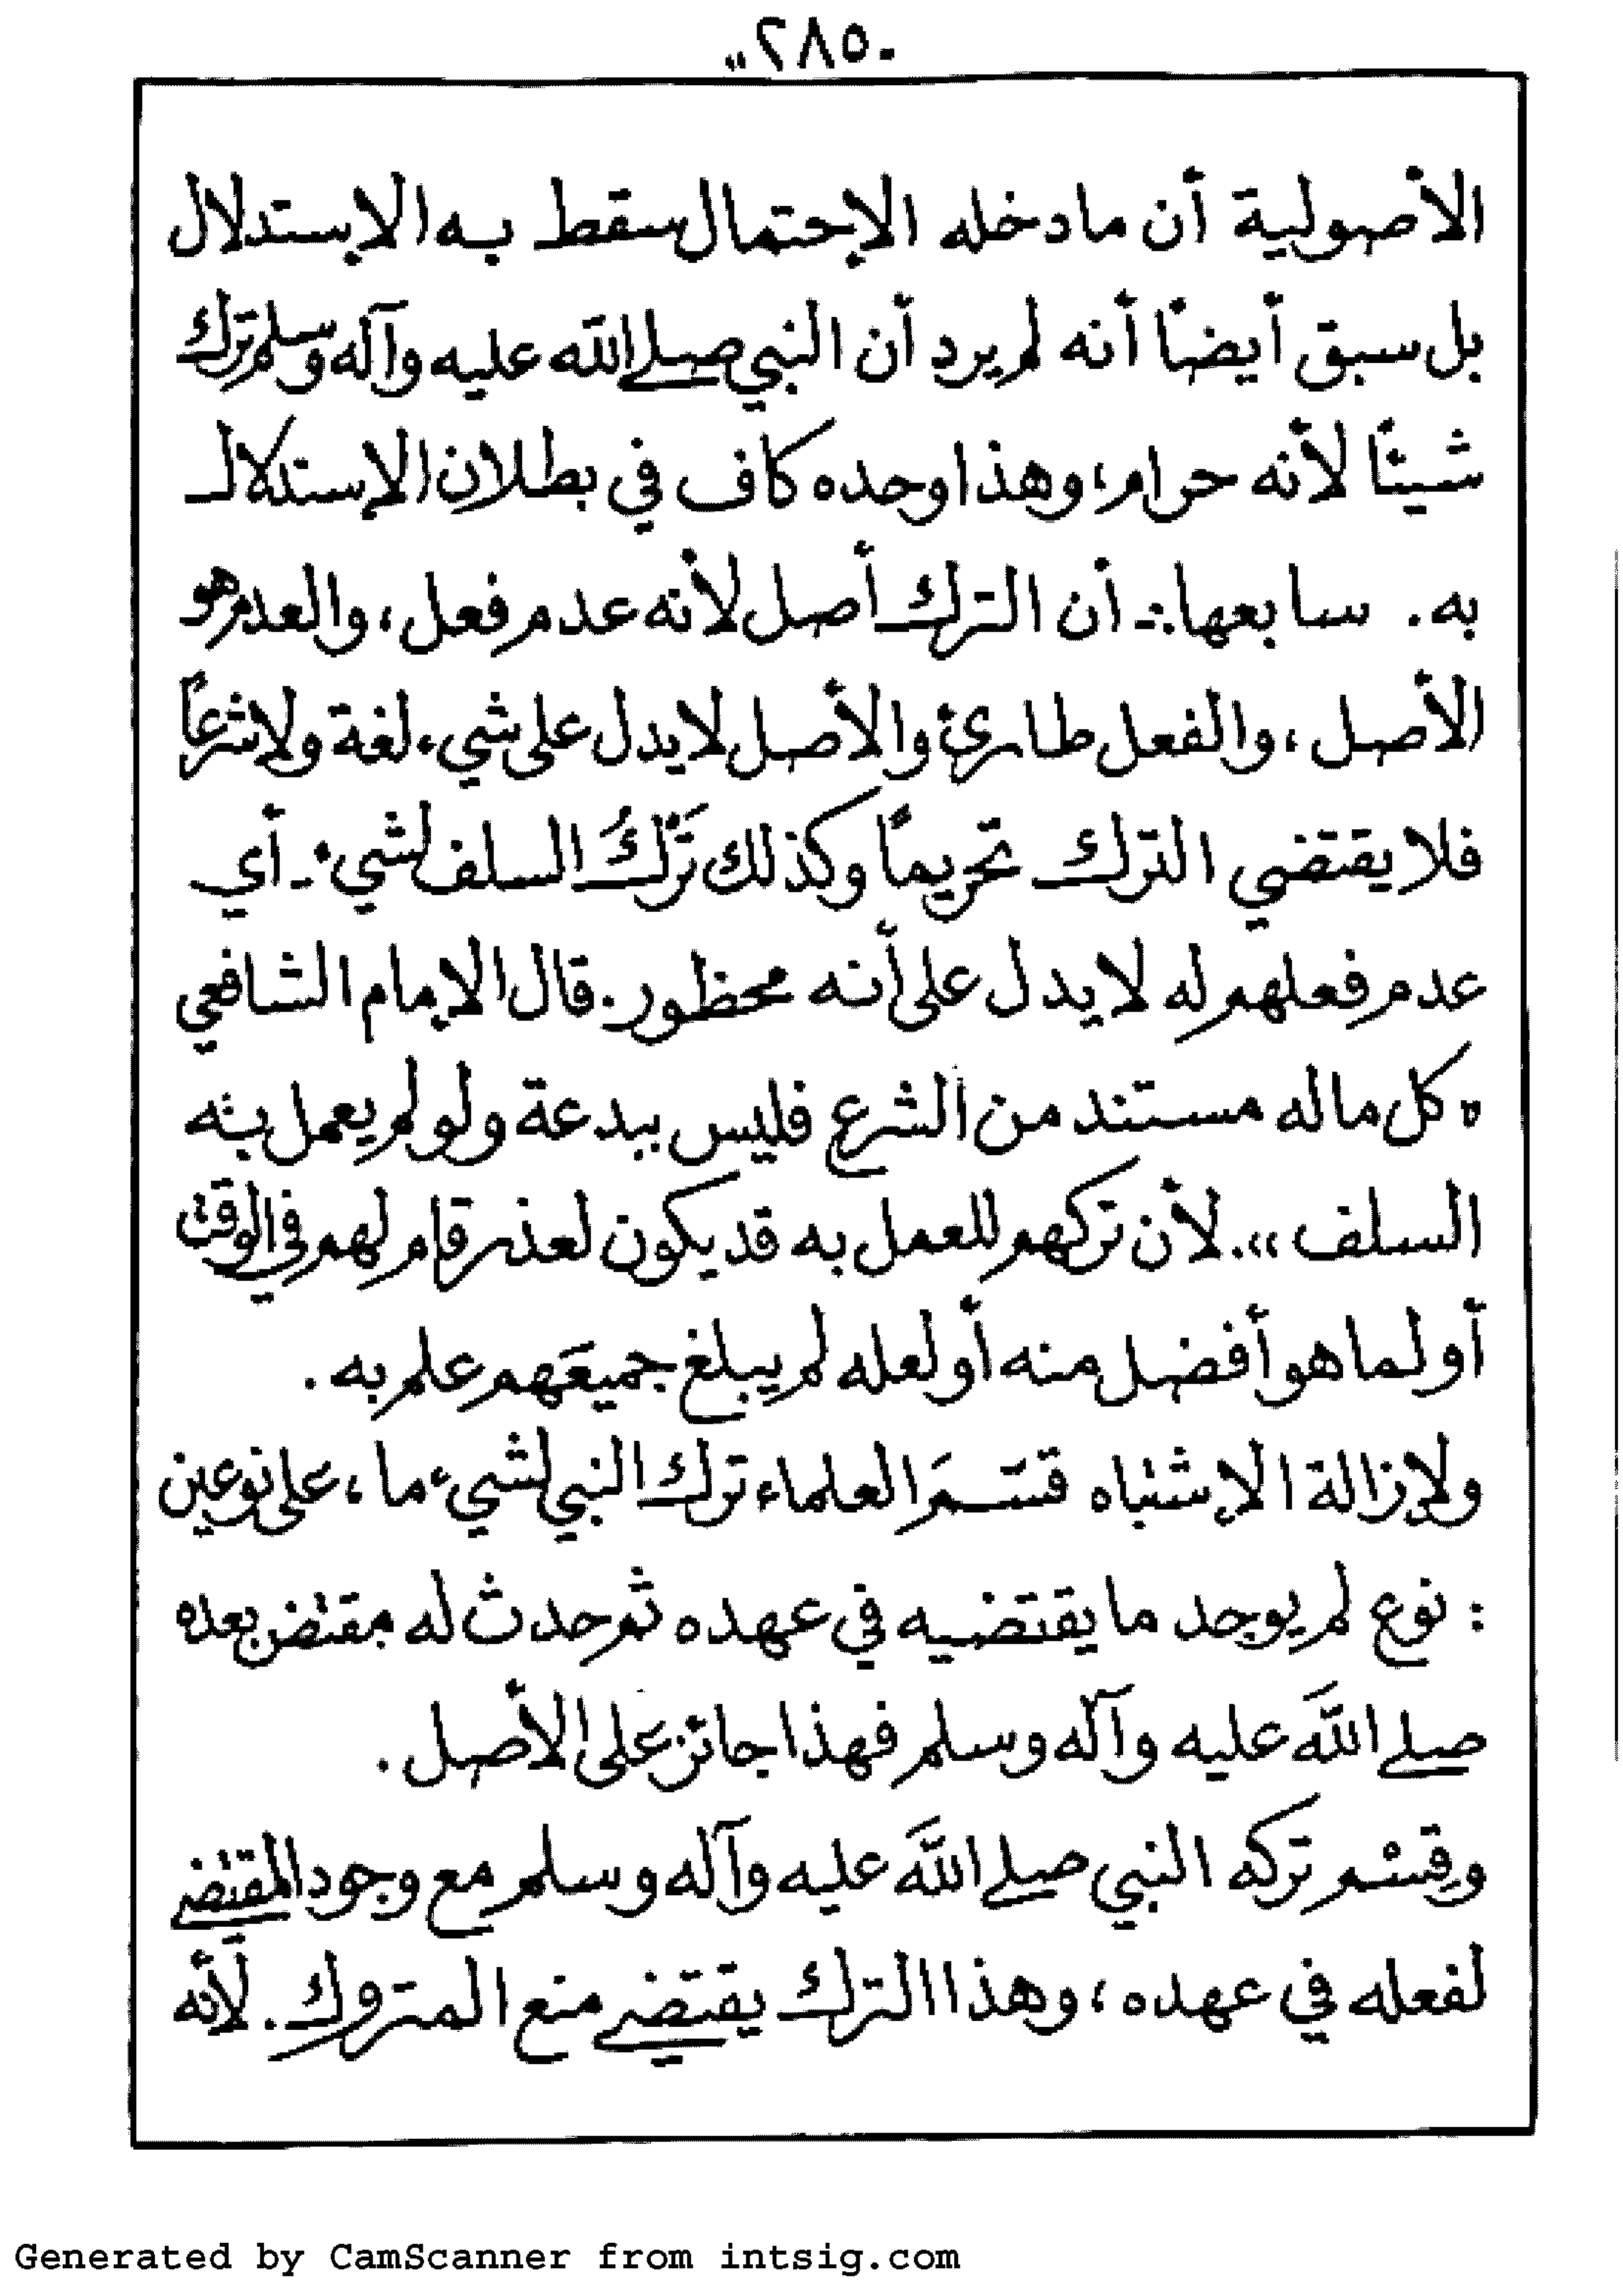 ٢٨٥
الأصولية أن مادخله الإحتمال سقط به الإستدلال
بل سبق أيضًا أنه لم يرد أن النبي صلى الله عليه وآله وسلم ترك
شيئًا لأنه حرام، وهذا وحده كاف في بطلان الإستدلال
به . سابعها :- أن الترك أصل لأنه عدم فعل، والعدم هو
الأصل، والفعل طارئ والأصل لا يدل على شيء لغة ولا شرعًا
فلا يقتضي الترك تحريمًا وكذلك تَرْكُ السلف لشيء - أي
عدم فعلهم له لا يدل على أنه محظور. قال الإمام الشافعي
« كل ماله مستند من الشرع فليس ببدعة ولو لم يعمل به
السلف ». لأن تركهم للعمل به قد يكون لعذر قام لهم في الوقت
أو لما هو أفضل منه أو لعله لم يبلغ جميعَهم علم به .
ولإزالة الإشتباه قسّمَ العلماء ترك النبي لشيء ما، على نوعين
: نوع لم يوجد ما يقتضيه في عهده ثم حدث له مقتض بعده
صلى اللهَ عليه وآله وسلم فهذا جائز على الأصل .
وقِسْم تركه النبي صلى اللهَ عليه وآله وسلم مع وجود المقتضي
لفعله في عهده، وهذا الترك يقتضي منع المتروك. لَأنه
Generated by CamScanner from intsig.com